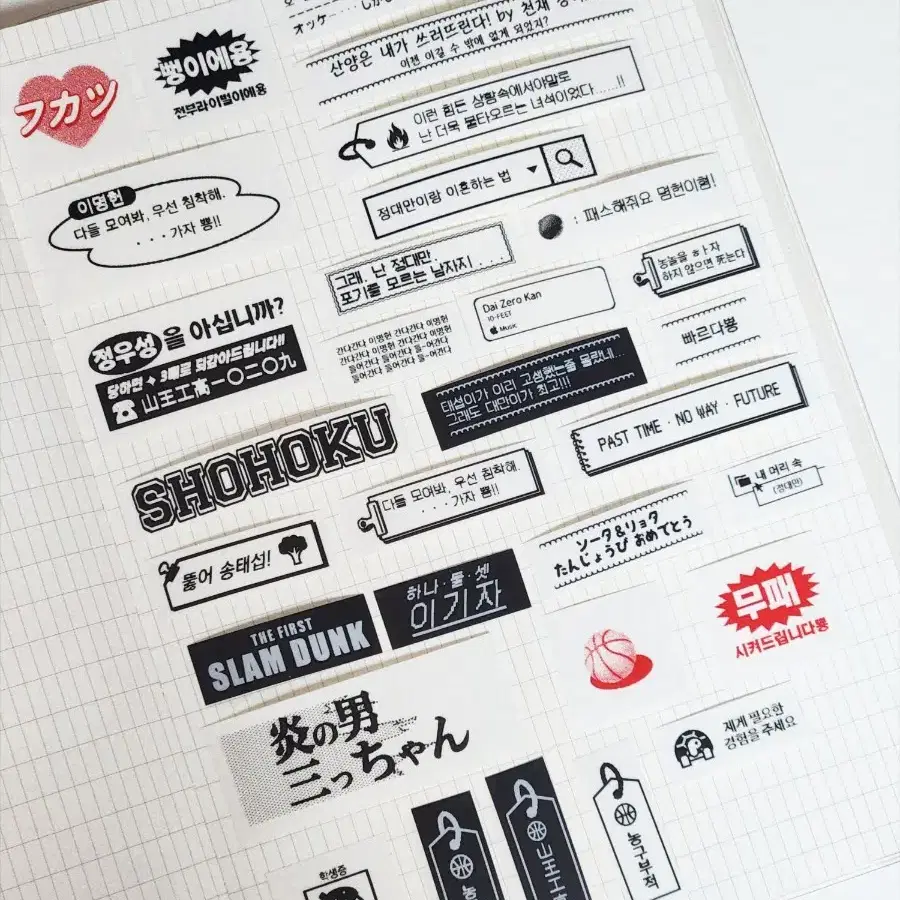 オッケー・・・しかし
산양은 내가 쓰러뜨린다! by 천재
이젠 이길 수 밖에 없게 되었지?
フカツ
뻥이에용
전부라이벌이에용
이런 힘든 상황속에서야말로
난 더욱 불타오르는 녀석이었다......!!
이명헌
다들 모여봐, 우선 침착해.
...가자 뿅!!
정대만이랑 이혼하는 법
: 패스해줘요 명헌이형!
그래. 난 정대만.
포기를 모르는 남자지...
농놀을 ㅎㅏ자
하지 않으면 死는다
정우성을 아십니까?
당하면 3배로 되갚아드립니다!!
山王工高一〇二〇九
간다간다 이명헌 간다간다 이명헌
간다간다 이명헌 간다간다 이명헌
들어간다 들어간다 들-어간다
들어간다 들어간다 들-어간다
Dai Zero Kan
10-FEET
Music
바르다뿅
태섭이가 이리 고생했는줄 몰랐네...
그래도 대만이가 최고!!!
PAST TIME · NO WAY · FUTURE
SHOHOKU
다들 모여봐, 우선 침착해.
...가자 뿅!!
내 머리 속
(정대만)
뚫어 송태섭!
ソータ&リョタ
たんじょうび おめでとう
하나·둘·셋
이기자
THE FIRST
SLAM DUNK
무패
시켜드립니다뿅
炎の男
三っちゃん
제게 필요한
경험을 주세요
학생증
농
山王工
농구부적